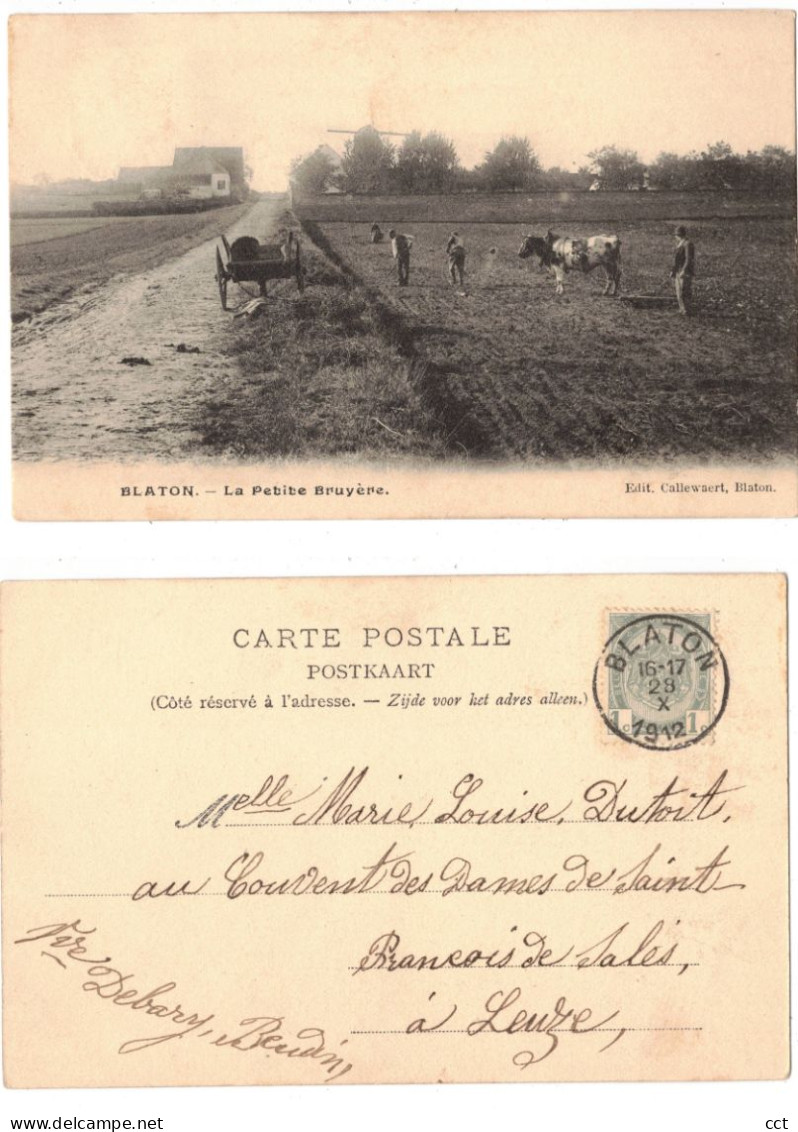 BLATON. – La Petite Bruyère.
Edit. Callewaert, Blaton.
CARTE POSTALE
POSTKAART
(Côté réservé à l'adresse. — Zijde voor het adres alleen.)
BLATON
16-17
28
X
1912
1c 1c
Melle Marie, Louise, Dutoit,
au Couvent des Dames de Saint
Francois de Sales,
á Leuze,
Vve Debary, Beudin,
delcampe.net
cct